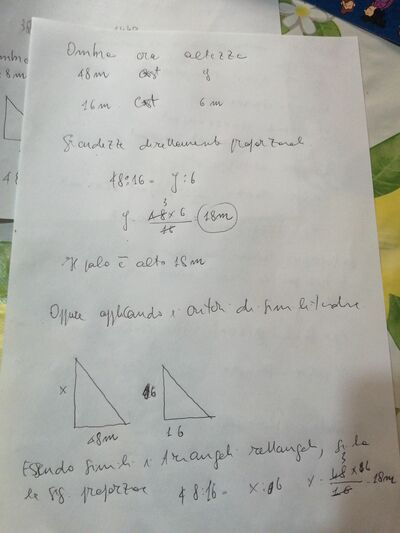 Ombra ora altezza
48m cost y
16m cost 6m
Grandezze direttamente proporzionali
48:16 = y:6
y = 48 x 6 / 16 = 18m
3
Il palo è alto 18m
Oppure applicando i criteri di similitudine
x 48m
6 16
Essendo simili i triangoli rettangoli, si ha
la seg. proporzione 48:16 = x:6 x = 48 x 6 / 16 = 18m
3